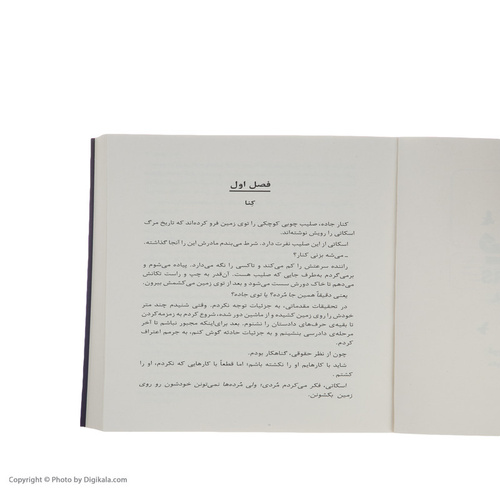 فصل اول
کِنا
کنار جاده، صلیب چوبی کوچکی را توی زمین فرو کرده‌اند که تاریخ مرگ
اسکاتی را رویش نوشته‌اند.
اسکاتی از این صلیب نفرت دارد. شرط می‌بندم مادرش این را آنجا گذاشته.
ـ می‌شه بزنی کنار؟
راننده سرعتش را کم می‌کند و تاکسی را نگه می‌دارد. پیاده می‌شوم و
برمی‌گردم به‌طرف جایی که صلیب هست. آن‌قدر به چپ و راست تکانش
می‌دهم تا خاک دورش سست می‌شود و بعد از توی زمین می‌کشمش بیرون.
یعنی دقیقاً همین جا مُرده؟ یا توی جاده؟
در تحقیقات مقدماتی، به جزئیات توجه نکردم. وقتی شنیدم چند متر
خودش را روی زمین کشیده و از ماشین دور شده، شروع کردم به زمزمه‌کردن
تا بقیه‌ی حرف‌های دادستان را نشنوم. بعد برای‌اینکه مجبور نباشم تا آخر
مرحله‌ی دادرسی بنشینم و به جزئیات حادثه گوش کنم، به جرمم اعتراف
کردم.
چون از نظر حقوقی، گناهکار بودم.
شاید با کارهایم او را نکشته باشم؛ اما قطعاً با کارهایی که نکردم، او را
کشتم.
اسکاتی، فکر می‌کردم مُردی؛ ولی مُرده‌ها نمی‌تونن خودشون رو روی
زمین بکشونن.
Copyright © Photo by Digikala.com